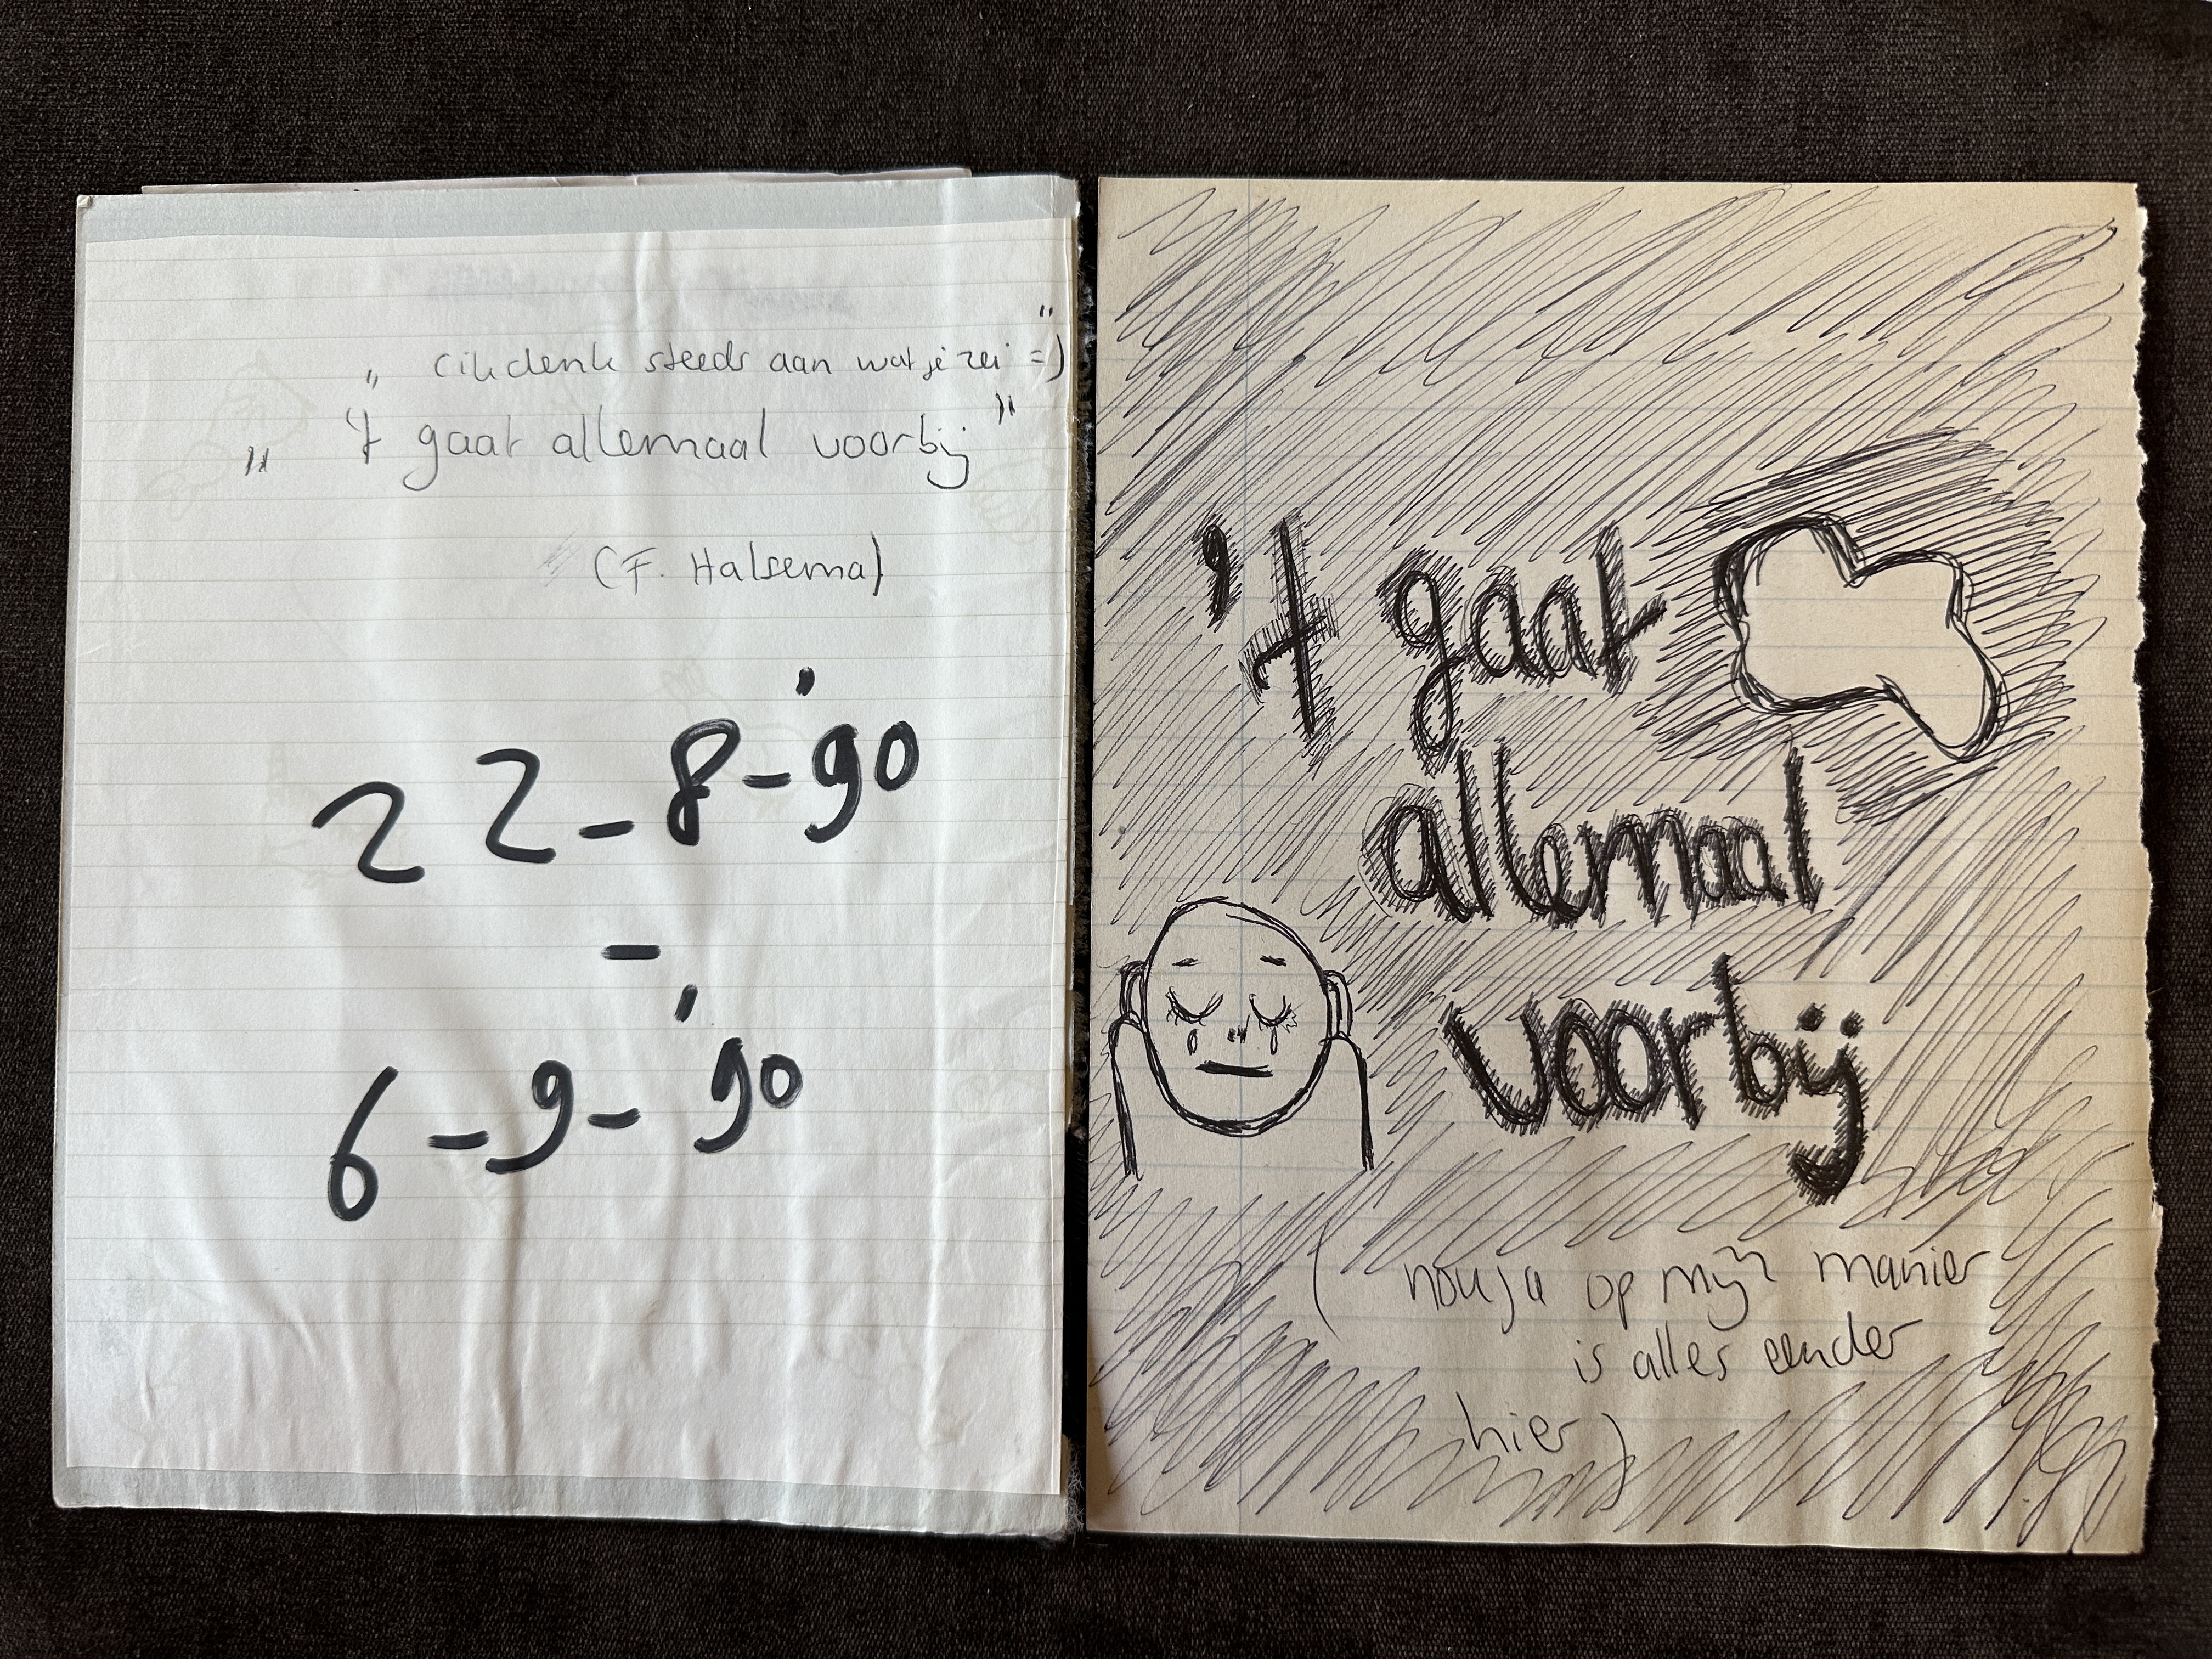 „ (ik denk steeds aan wat je zei =) "
„ 't gaat allemaal voorbij "
(F. Halsema)
22-8-'90
-
6-9-'90
't gaat
allemaal
voorbij
( nou ja op mijn manier
is alles eender
hier )